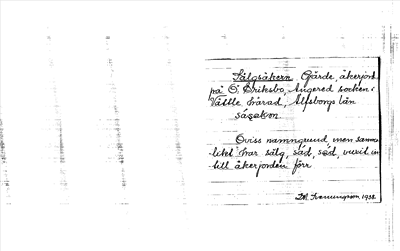 Sälgsåkern, Gärde, åkerjord
på Ö. Eriksbo, Angered socken i
Vättle härad, Älfsborgs län
sáçakon
Oviss namngrund, men sanno-
likt har sälg, säd, vuxit in
till åkerjorden förr
1938.